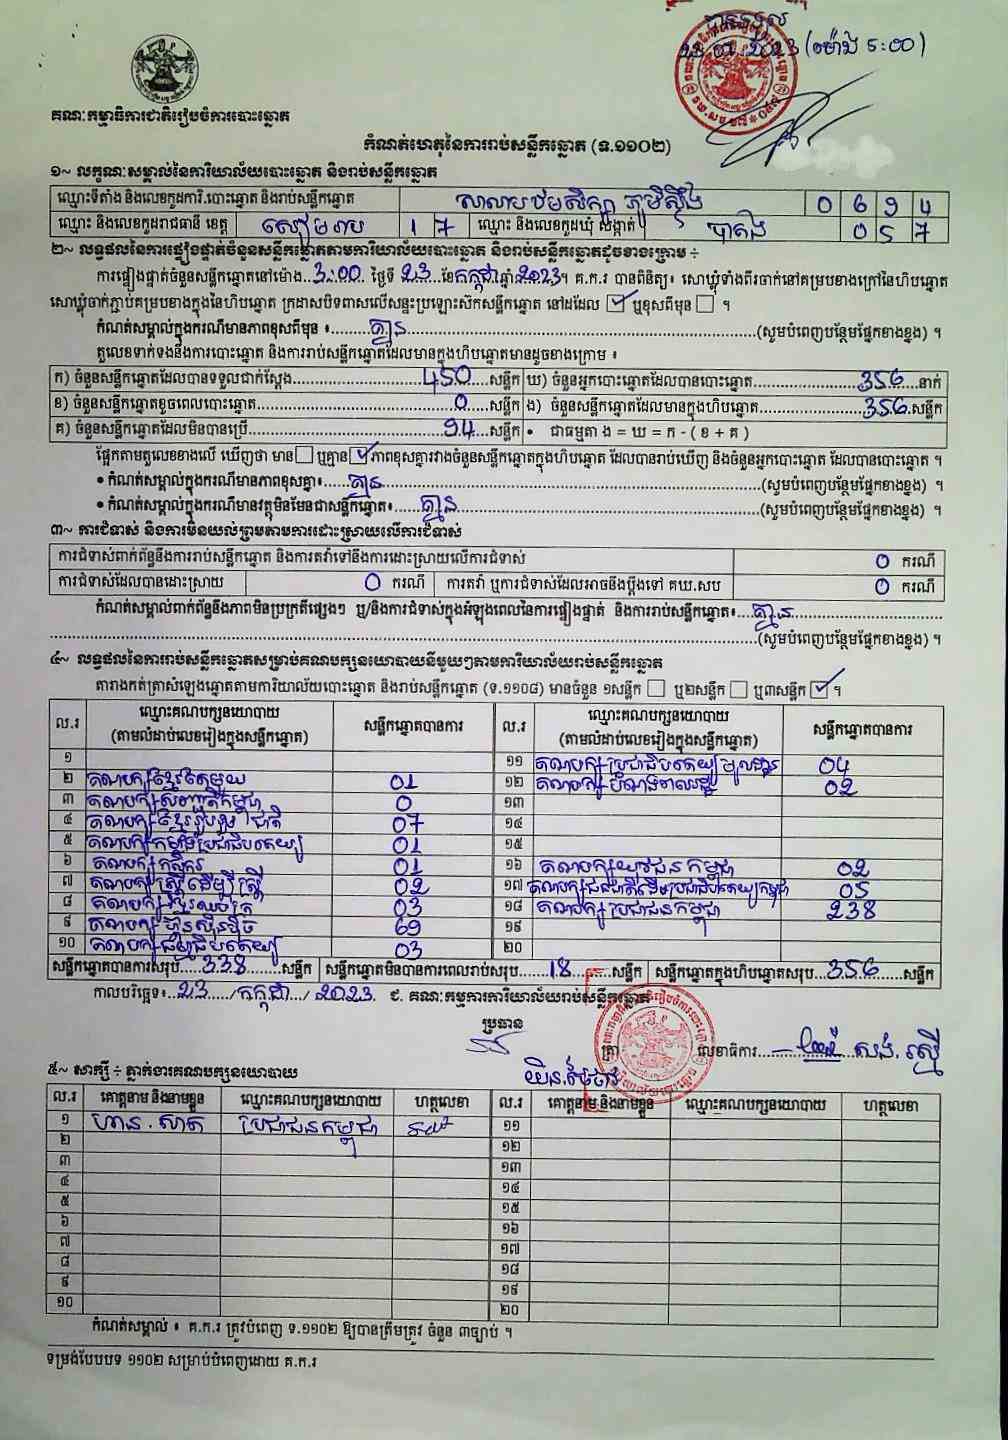 បានចូល
23.07.2023 (ម៉ោង 5:00)
គណៈកម្មាធិការជាតិរៀបចំការបោះឆ្នោត
កំណត់ហេតុនៃការរាប់សន្លឹកឆ្នោត (ទ.១១០២)
១~ លក្ខណៈសម្គាល់នៃការិយាល័យបោះឆ្នោត និងរាប់សន្លឹកឆ្នោត
ឈ្មោះទីតាំង និងលេខកូដការិ.បោះឆ្នោត និងរាប់សន្លឹកឆ្នោត សាលាបឋមសិក្សា ភូមិស្ទឹង 0 6 9 4
ឈ្មោះ និងលេខកូដរាជធានី ខេត្ត សៀមរាប 1 7 ឈ្មោះ និងលេខកូដឃុំ សង្កាត់ 0 5 7
២~ លទ្ធផលនៃការផ្ទៀងផ្ទាត់ចំនួនសន្លឹកឆ្នោតតាមការិយាល័យបោះឆ្នោត និងរាប់សន្លឹកឆ្នោតដូចខាងក្រោម ÷
ការផ្ទៀងផ្ទាត់ចំនួនសន្លឹកឆ្នោតនៅម៉ោង 3:00 ថ្ងៃទី 23 ខែ កក្កដា ឆ្នាំ 2023។ គ.ក.រ បានពិនិត្យ៖ សោឃ្លុំទាំងពីរចាក់នៅគម្របខាងក្រៅនៃហិបឆ្នោត
សោឃ្លុំចាក់ភ្ជាប់គម្របខាងក្នុងនៃហិបឆ្នោត ក្រដាសបិទពាសលើសន្ទះប្រឡោះស៊កសន្លឹកឆ្នោត នៅដដែល ☑ ឬខុសពីមុន ☐ ។
កំណត់សម្គាល់ក្នុងករណីមានភាពខុសពីមុន ៖ គ្មាន (សូមបំពេញបន្ថែមផ្នែកខាងខ្នង) ។
តួលេខទាក់ទងនឹងការបោះឆ្នោត និងការរាប់សន្លឹកឆ្នោតដែលមានក្នុងហិបឆ្នោតមានដូចខាងក្រោម ៖
ក) ចំនួនសន្លឹកឆ្នោតដែលបានទទួលជាក់ស្តែង 450 សន្លឹក ឃ) ចំនួនអ្នកបោះឆ្នោតដែលបានបោះឆ្នោត 356 នាក់
ខ) ចំនួនសន្លឹកឆ្នោតខូចពេលបោះឆ្នោត 0 សន្លឹក ង) ចំនួនសន្លឹកឆ្នោតដែលមានក្នុងហិបឆ្នោត 356 សន្លឹក
គ) ចំនួនសន្លឹកឆ្នោតដែលមិនបានប្រើ 94 សន្លឹក • ជាធម្មតា ង = ឃ = ក - ( ខ + គ )
ផ្អែកតាមតួលេខខាងលើ ឃើញថា មាន ☐ ឬគ្មាន ☑ ភាពខុសគ្នារវាងចំនួនសន្លឹកឆ្នោតក្នុងហិបឆ្នោត ដែលបានរាប់ឃើញ និងចំនួនអ្នកបោះឆ្នោត ដែលបានបោះឆ្នោត ។
• កំណត់សម្គាល់ក្នុងករណីមានភាពខុសគ្នា៖ គ្មាន (សូមបំពេញបន្ថែមផ្នែកខាងខ្នង) ។
• កំណត់សម្គាល់ក្នុងករណីមានវត្ថុមិនមែនជាសន្លឹកឆ្នោត៖ គ្មាន (សូមបំពេញបន្ថែមផ្នែកខាងខ្នង) ។
៣~ ការជំទាស់ និងការមិនយល់ព្រមតាមការដោះស្រាយលើការជំទាស់
ការជំទាស់ពាក់ព័ន្ធនឹងការរាប់សន្លឹកឆ្នោត និងការតវ៉ាទៅនឹងការដោះស្រាយលើការជំទាស់ 0 ករណី
ការជំទាស់ដែលបានដោះស្រាយ 0 ករណី ការតវ៉ា ឬការជំទាស់ដែលអាចនឹងប្តឹងទៅ គឃ.សប 0 ករណី
កំណត់សម្គាល់ពាក់ព័ន្ធនឹងភាពមិនប្រក្រតីផ្សេងៗ ឬ/និងការជំទាស់ក្នុងអំឡុងពេលនៃការផ្ទៀងផ្ទាត់ និងការរាប់សន្លឹកឆ្នោត៖ គ្មាន
(សូមបំពេញបន្ថែមផ្នែកខាងខ្នង) ។
៤~ លទ្ធផលនៃការរាប់សន្លឹកឆ្នោតសម្រាប់គណបក្សនយោបាយនីមួយៗតាមការិយាល័យរាប់សន្លឹកឆ្នោត
តារាងកត់ត្រាសំឡេងឆ្នោតតាមការិយាល័យបោះឆ្នោត និងរាប់សន្លឹកឆ្នោត (ទ.១១០៨) មានចំនួន ១សន្លឹក ☐ ឬ២សន្លឹក ☐ ឬ៣សន្លឹក ☑ ។
ល.រ ឈ្មោះគណបក្សនយោបាយ (តាមលំដាប់លេខរៀងក្នុងសន្លឹកឆ្នោត) សន្លឹកឆ្នោតបានការ ល.រ ឈ្មោះគណបក្សនយោបាយ (តាមលំដាប់លេខរៀងក្នុងសន្លឹកឆ្នោត) សន្លឹកឆ្នោតបានការ
១ ១១ គណបក្សប្រជាធិបតេយ្យមូលដ្ឋាន 04
២ គណបក្សខ្មែរតែមួយ 01 ១២ គណបក្សបំណងពលរដ្ឋ 02
៣ គណបក្សសញ្ជាតិកម្ពុជា 0 ១៣
៤ គណបក្សខ្មែររួបរួមជាតិ 07 ១៤
៥ គណបក្សកម្លាំងប្រជាធិបតេយ្យ 01 ១៥
៦ គណបក្សកសិករ 01 ១៦ គណបក្សយុវជនកម្ពុជា 02
៧ គណបក្សស្ត្រីដើម្បីស្ត្រី 02 ១៧ គណបក្សជនជាតិដើមប្រជាធិបតេយ្យកម្ពុជា 05
៨ គណបក្សខ្មែរឈប់ក្រ 03 ១៨ គណបក្សប្រជាជនកម្ពុជា 238
៩ គណបក្សហ៊្វុនស៊ិនប៉ិច 69 ១៩
១០ គណបក្សធម្មាធិបតេយ្យ 03 ២០
សន្លឹកឆ្នោតបានការសរុប 338 សន្លឹក សន្លឹកឆ្នោតមិនបានការពេលរាប់សរុប 18 សន្លឹក សន្លឹកឆ្នោតក្នុងហិបឆ្នោតសរុប 356 សន្លឹក
កាលបរិច្ឆេទ៖ 23 / កក្កដា / 2023. ៩. គណៈកម្មការការិយាល័យរាប់សន្លឹកឆ្នោត
ប្រធាន
ត្រា លេខាធិការ សង់. រស្មី
៥~ សាក្សី ÷ ភ្នាក់ងារគណបក្សនយោបាយ
ល.រ គោត្តនាម និងនាមខ្លួន ឈ្មោះគណបក្សនយោបាយ ហត្ថលេខា ល.រ គោត្តនាម និងនាមខ្លួន ឈ្មោះគណបក្សនយោបាយ ហត្ថលេខា
១ ហាន. សាត ប្រជាជនកម្ពុជា ១១
២ ១២
៣ ១៣
៤ ១៤
៥ ១៥
៦ ១៦
៧ ១៧
៨ ១៨
៩ ១៩
១០ ២០
កំណត់សម្គាល់ ៖ គ.ក.រ ត្រូវបំពេញ ទ.១១០២ ឱ្យបានត្រឹមត្រូវ ចំនួន ៣ច្បាប់ ។
ទម្រង់បែបបទ ១១០២ សម្រាប់បំពេញដោយ គ.ក.រ